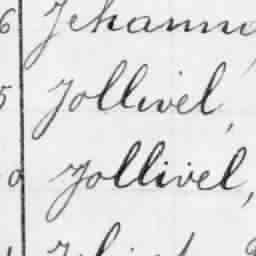 6 Jehanno
5 Jollivel,
0 Jollivel,